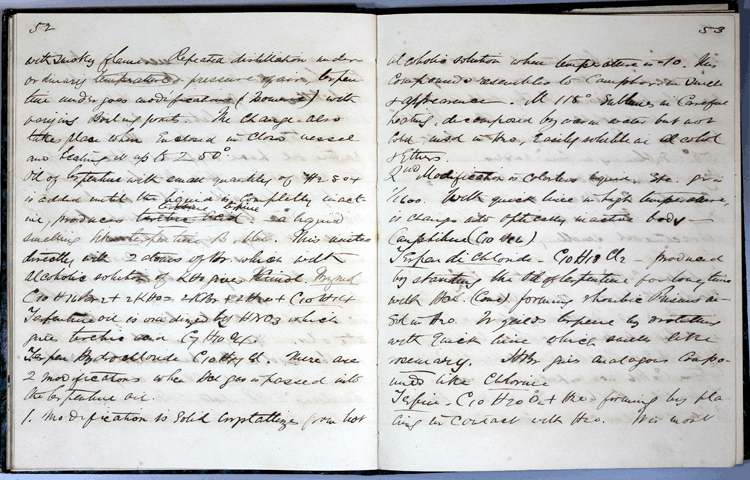 52
with smokey flame. Repeated distillation under
ordinary temperature & pressure of air, terpen
tine undergoes modifications (Isomers) with
varying boiling points. The change also
takes place when enclosed in close vessel
and heating it up to 250°
Oil of terpentine with small quantity of H2SO4
is added until the liquid is completely inact
ive, produces terebene a liquid
smelling like terpentine. This unites
directly with 2 atoms of Br which with
alcoholic solution of KHO gives
C10 H16 Br2 + 2KHO = 2KBr + 2H2O + C10 H14
Terpentine oil is oxidized by HNO3 which
give terebic acid C7 H10 O4
Terpen Hydrochloride C10 H17 Cl. There are
2 modifications when HCl gas is passed into
the terpentine oil
1. Modification is solid crystallize from hot
53
alcoholic solution when temperature is -10. This
Compounds resembles to Camphor in smell
& appearance. M 115° Sublimes in Careful
heating. decomposed by warm water but not
cold, used in H2O, Easily soluble in alcohol
& Ethers
2nd Modification is Colorless liquid, Spe. gra
With quick lime in high temperature,
is changes into optically inactive body
Camphilene (C10 H16)
Terpen di Chloride - C10 H18 Cl2 - produced
by standing the Oil of terpentine for long time
with HCl (Conc) forming rhombic Prisms in
Sol in H2O. It yields terpene by
with Quick lime which smells like
rosemary. HBr gives analogous compo
und like Chlorine
Terpine - C10 H20 O2 + H2O - forming by pla
cing in Contact with H2O. It is most